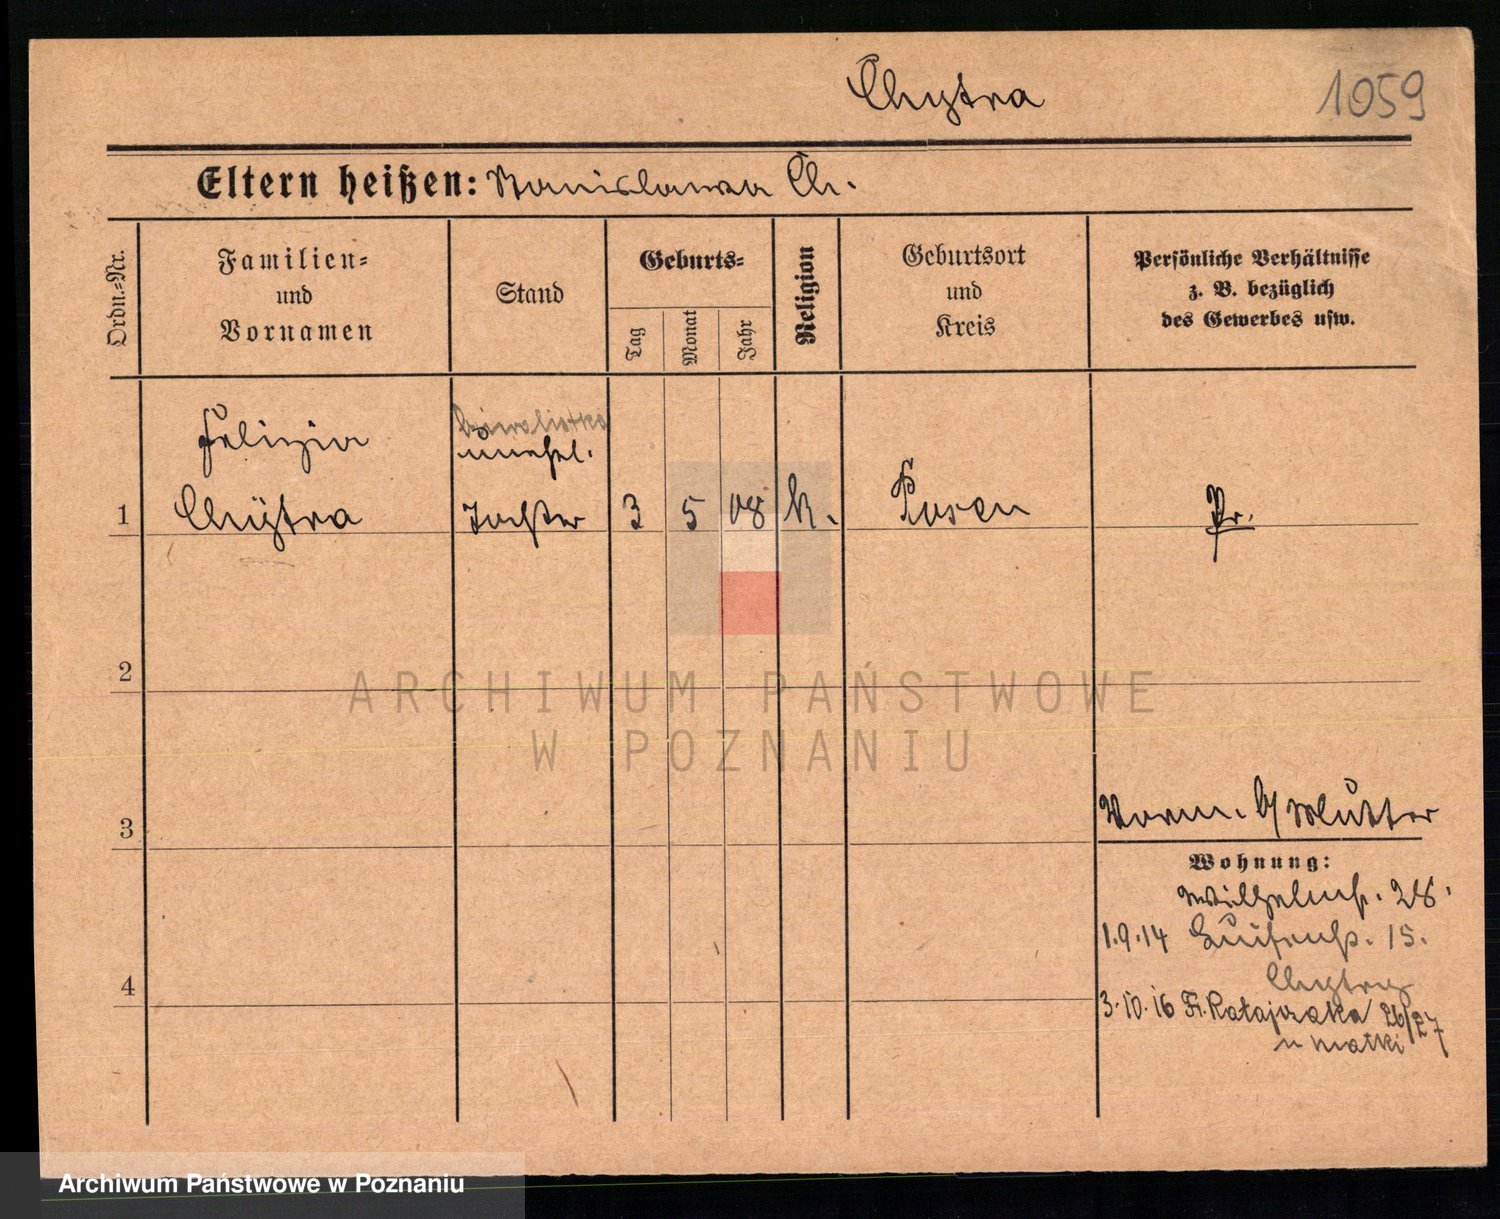 Chytra
1059
Eltern heißen: Stanislawa Ch.
Ordn.-Nr.
Familien-
und
Vornamen
Stand
Geburts-
Tag
Monat
Jahr
Religion
Geburtsort
und
Kreis
Persönliche Verhältnisse
z. B. bezüglich
des Gewerbes usw.
Felizia
unehel.
1 Chytra Tochter 3 5 08 k. Posen Pr.
2
ARCHIWUM PAŃSTWOWE
W POZNANIU
Vorm. Mutter
3
Wohnung:
Wilhelmst. 28.
1.9.14 Luisenst. 15.
4
Chytra
3.10.16 Fr. Ratajczaka 26/27
u matki
Archiwum Państwowe w Poznaniu